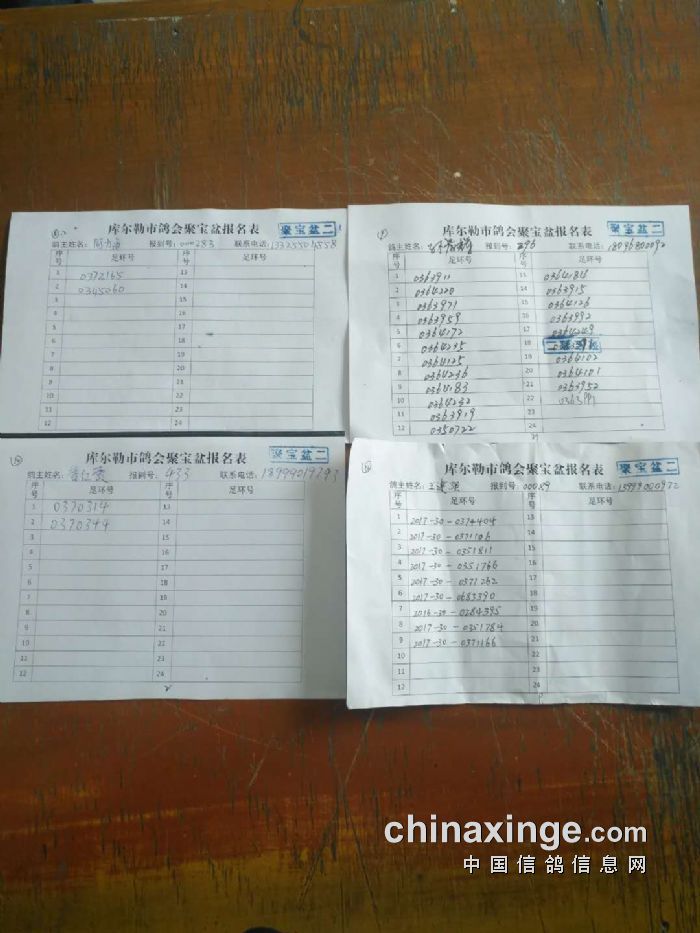 库尔勒市鸽会聚宝盆报名表 聚宝盆二
鸽主姓名: 报到号:000283 联系电话:13325504558
序号 足环号 序号 足环号
1 0372165 13
2 0345060 14
3 15
4 16
5 17
6 18
7 19
8 20
9 21
10 22
11 23
12 24
库尔勒市鸽会聚宝盆报名表 聚宝盆二
鸽主姓名: 报到号:296 联系电话:
序号 足环号 序号 足环号
1 0363911 13 0364184
2 0364220 14 0363915
3 0363971 15 0364126
4 0363959 16 0363992
5 0364172 17 0364249
6 0364235 18
7 0364125 19 0364102
8 0364236 20 0364101
9 0364183 21 0363952
10 0364232 22
11 0363919 23
12 0350722 24
库尔勒市鸽会聚宝盆报名表 聚宝盆二
鸽主姓名: 报到号:433 联系电话:18999019793
序号 足环号 序号 足环号
1 0370314 13
2 0370344 14
3 15
4 16
5 17
6 18
7 19
8 20
9 21
10 22
11 23
12 24
2
库尔勒市鸽会聚宝盆报名表 聚宝盆二
鸽主姓名: 报到号:00089 联系电话:13999000972
序号 足环号 序号 足环号
1 2017-30-0374404 13
2 2017-30-0371106 14
3 2017-30-0351811 15
4 2017-30-0351766 16
5 2017-30-0371262 17
6 2017-30-0683390 18
7 2016-30-0284395 19
8 2017-30-0351784 20
9 2017-30-0371166 21
10 22
11 23
12 24
chinaxinge.com
中国信鸽信息网